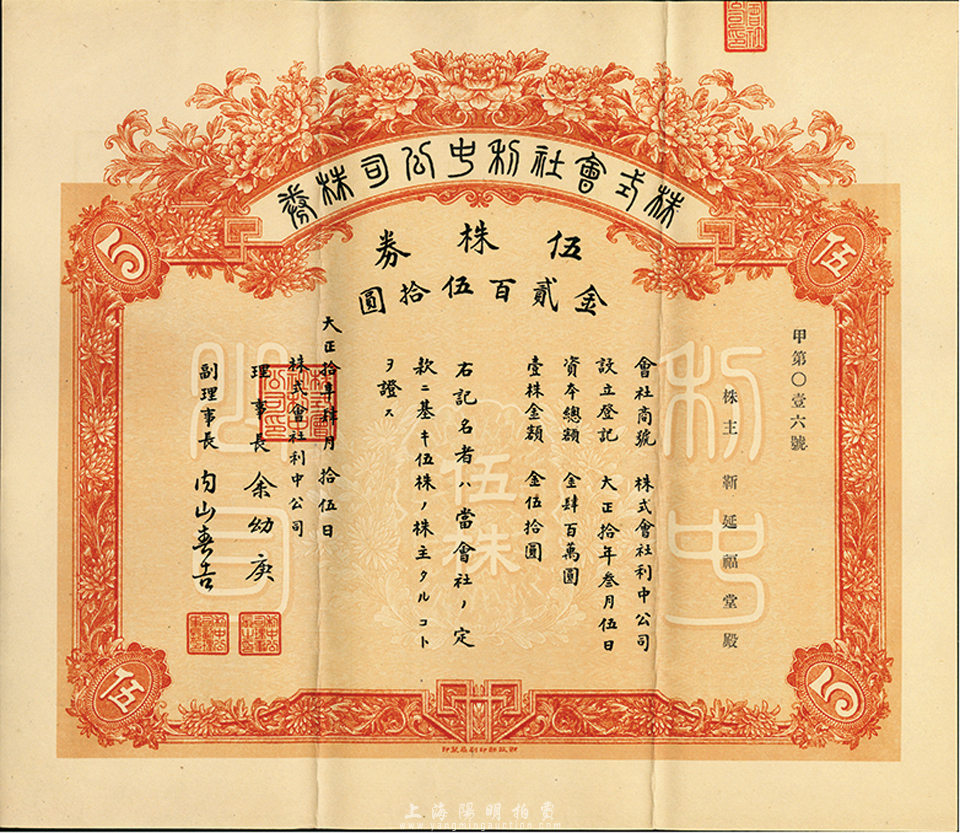 株式會社利中公司株券
伍株券
金貳百伍拾圓
甲第〇壹六號
株主 靳延福堂殿
會社商號 株式會社利中公司
設立登記 大正拾年叁月伍日
資本總額 金肆百萬圓
壹株金額 金伍拾圓
右記名者ハ當會社ノ定
款ニ基キ伍株ノ株主タルコト
ヲ證ス
大正拾年肆月拾伍日
株式會社利中公司
理事長 余幼庚
副理事長 内山喜吉
伍
5
伍
5
利中
公司
伍株
財政部印刷局製印
上海陽明拍賣
www.yangmingauction.com